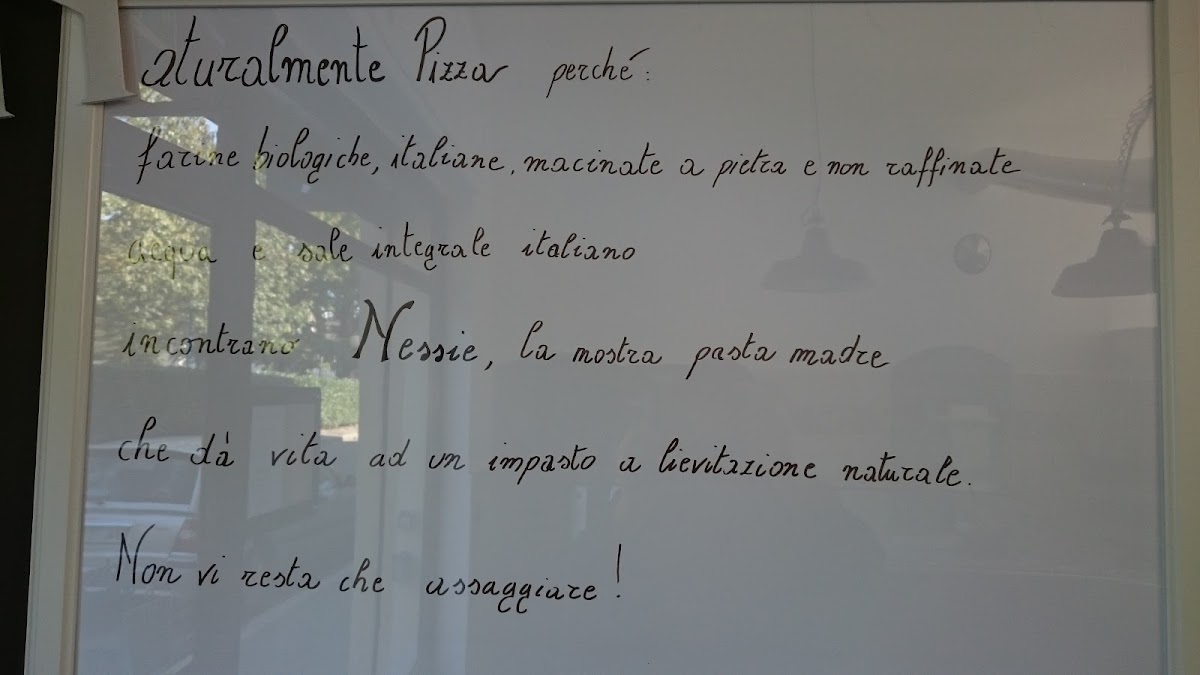 aturalmente Pizza perché:
farine biologiche, italiane, macinate a pietra e non raffinate
acqua e sale integrale italiano
incontrano Nessie, la nostra pasta madre
che dà vita ad un impasto a lievitazione naturale.
Non vi resta che assaggiare!